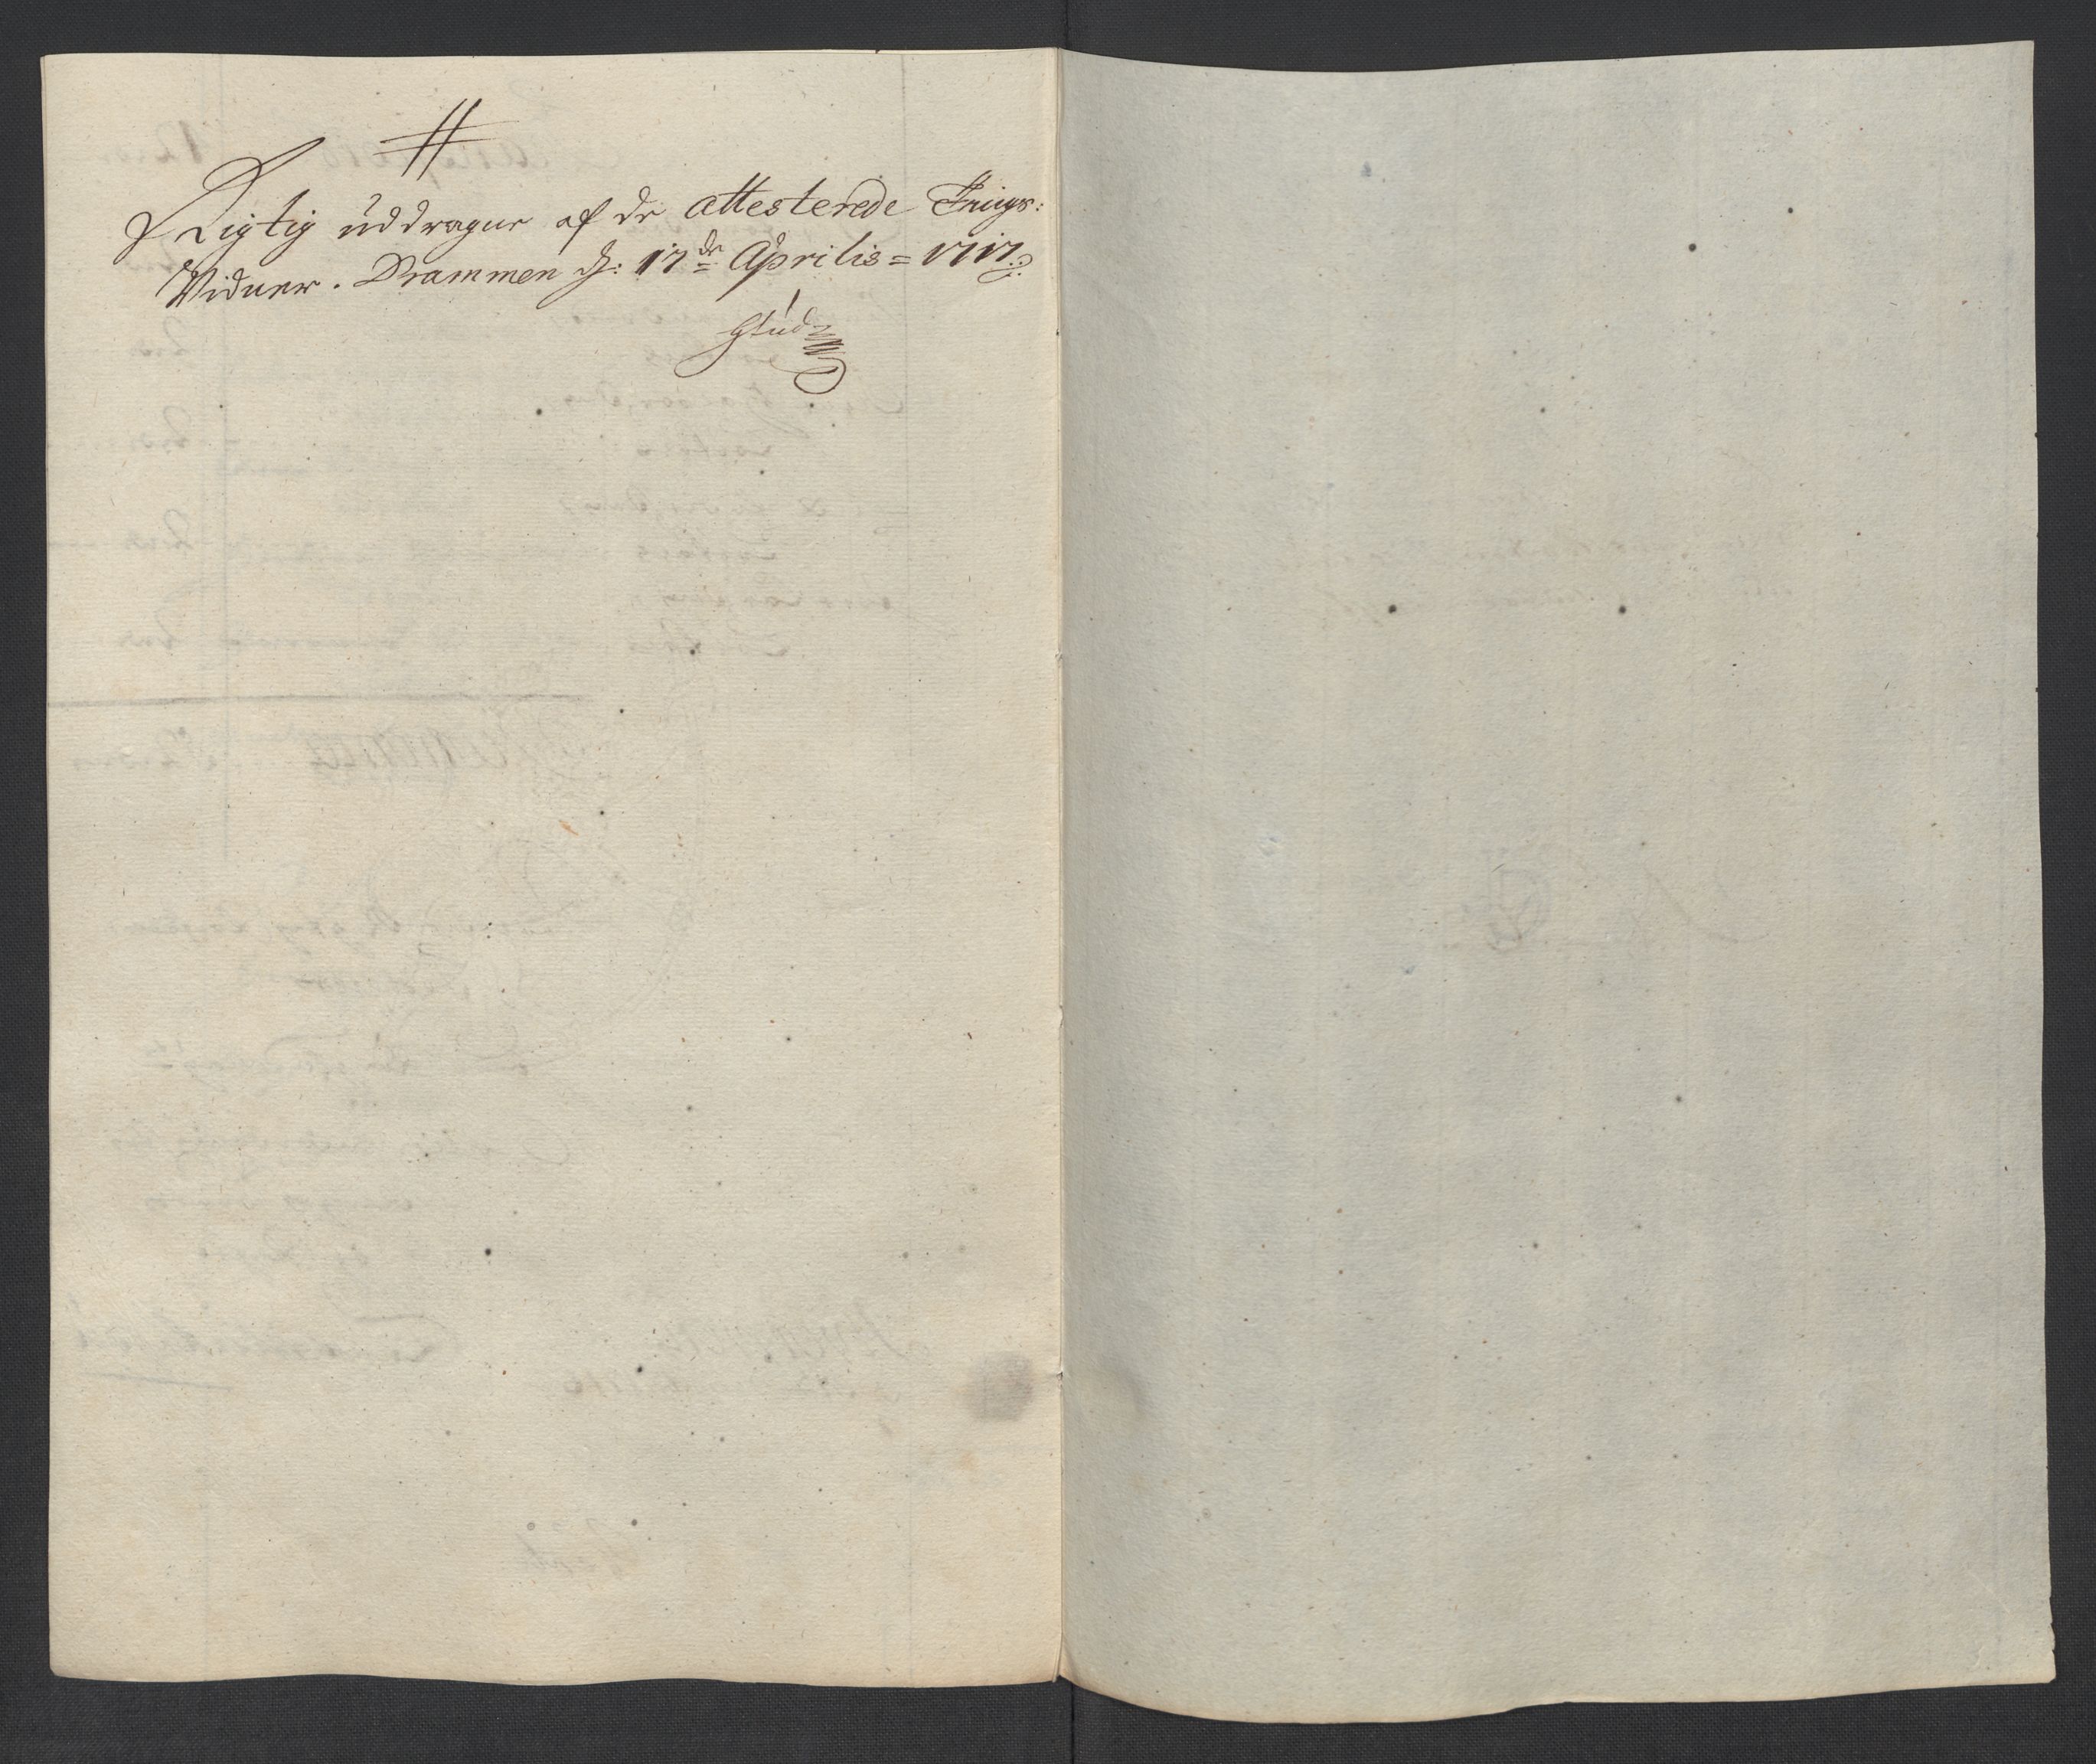 #
Rigtig uddragne af de attesterede Tings:
Vidner. Drammen d: 17de Aprilis = 1717.
Glud